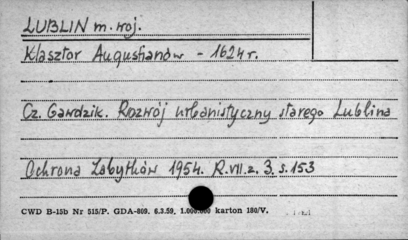 LUBLIN m. woj.
Klasztor Augustianów - 1624 r.
Cz. Gawdzik. Rozwój urbanistyczny starego Lublina
Ochrona Zabytków 1954. R.VII. z. 3. s. 153
CWD B-15b Nr 515/P. GDA-809. 6.3.59. 1.000.000 karton 180/V.